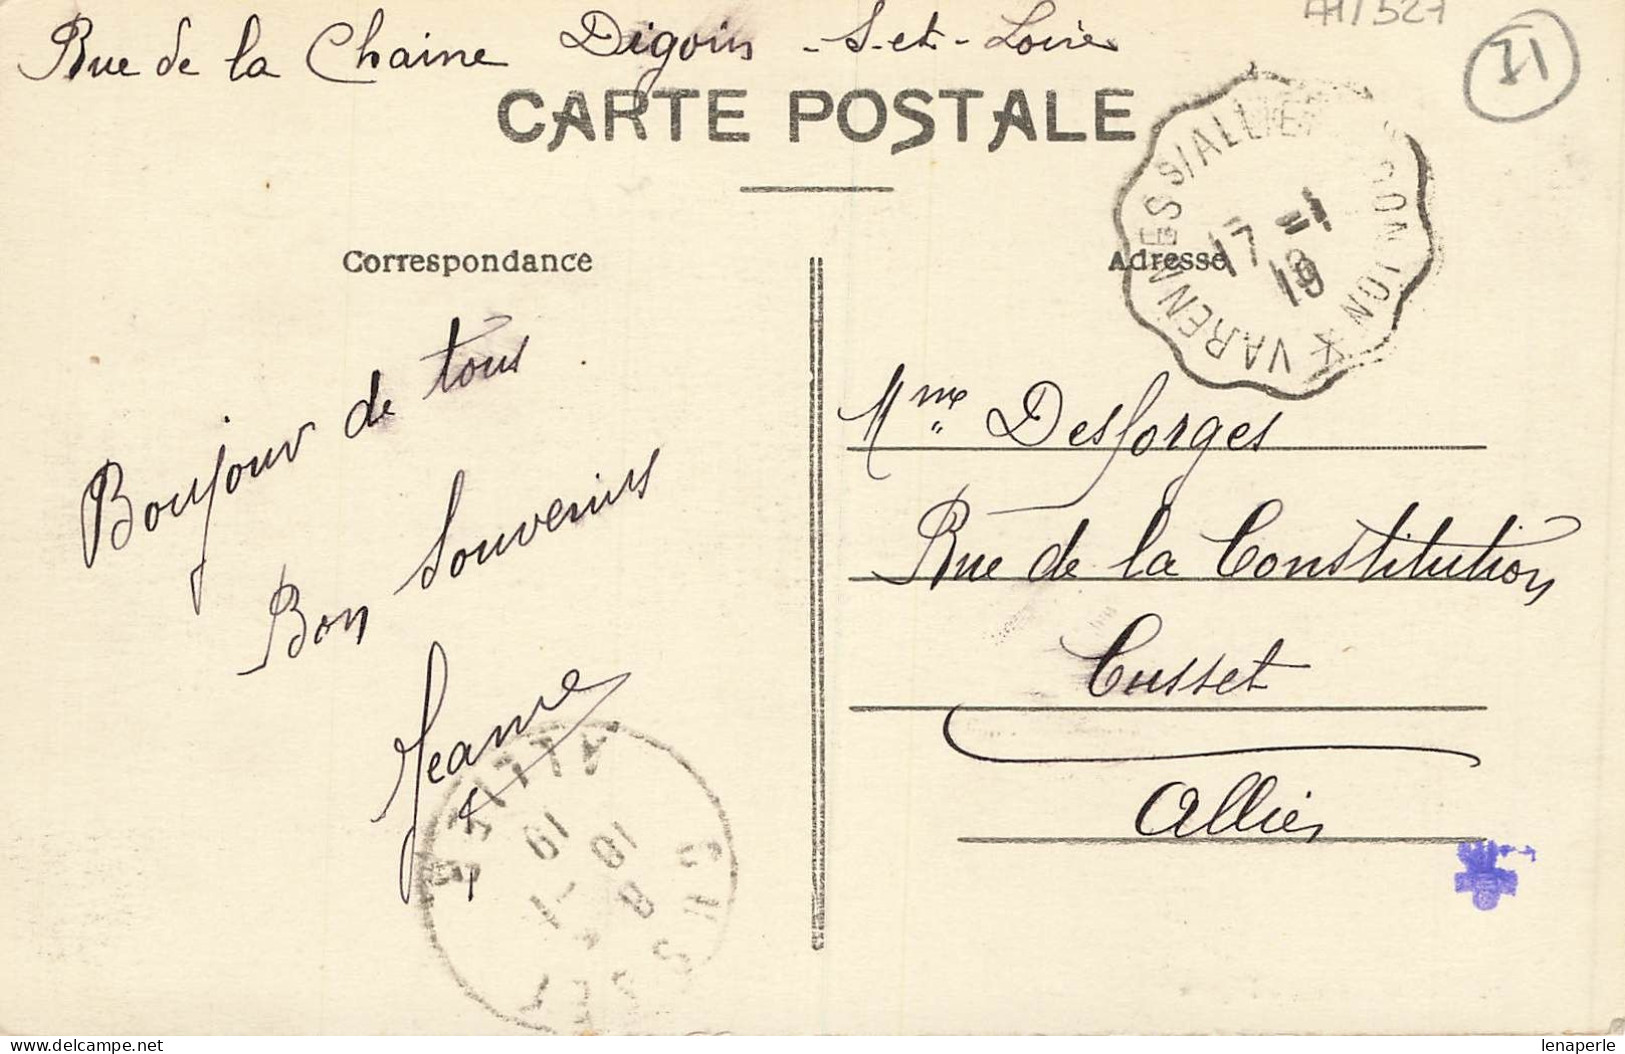 Rue de la Chaine Digoin - S-et-Loire
71/527
71
CARTE POSTALE
Correspondance
Adresse
VARENNES S/ALLIER
17 - 1
19
Bonjour de tous
Bon Souvenirs
Jeanne
Mme Desforges
Rue de la Constitution
Cusset
Allier
CUSSET
ALLIER
8
18 - 1
19
lenaperle